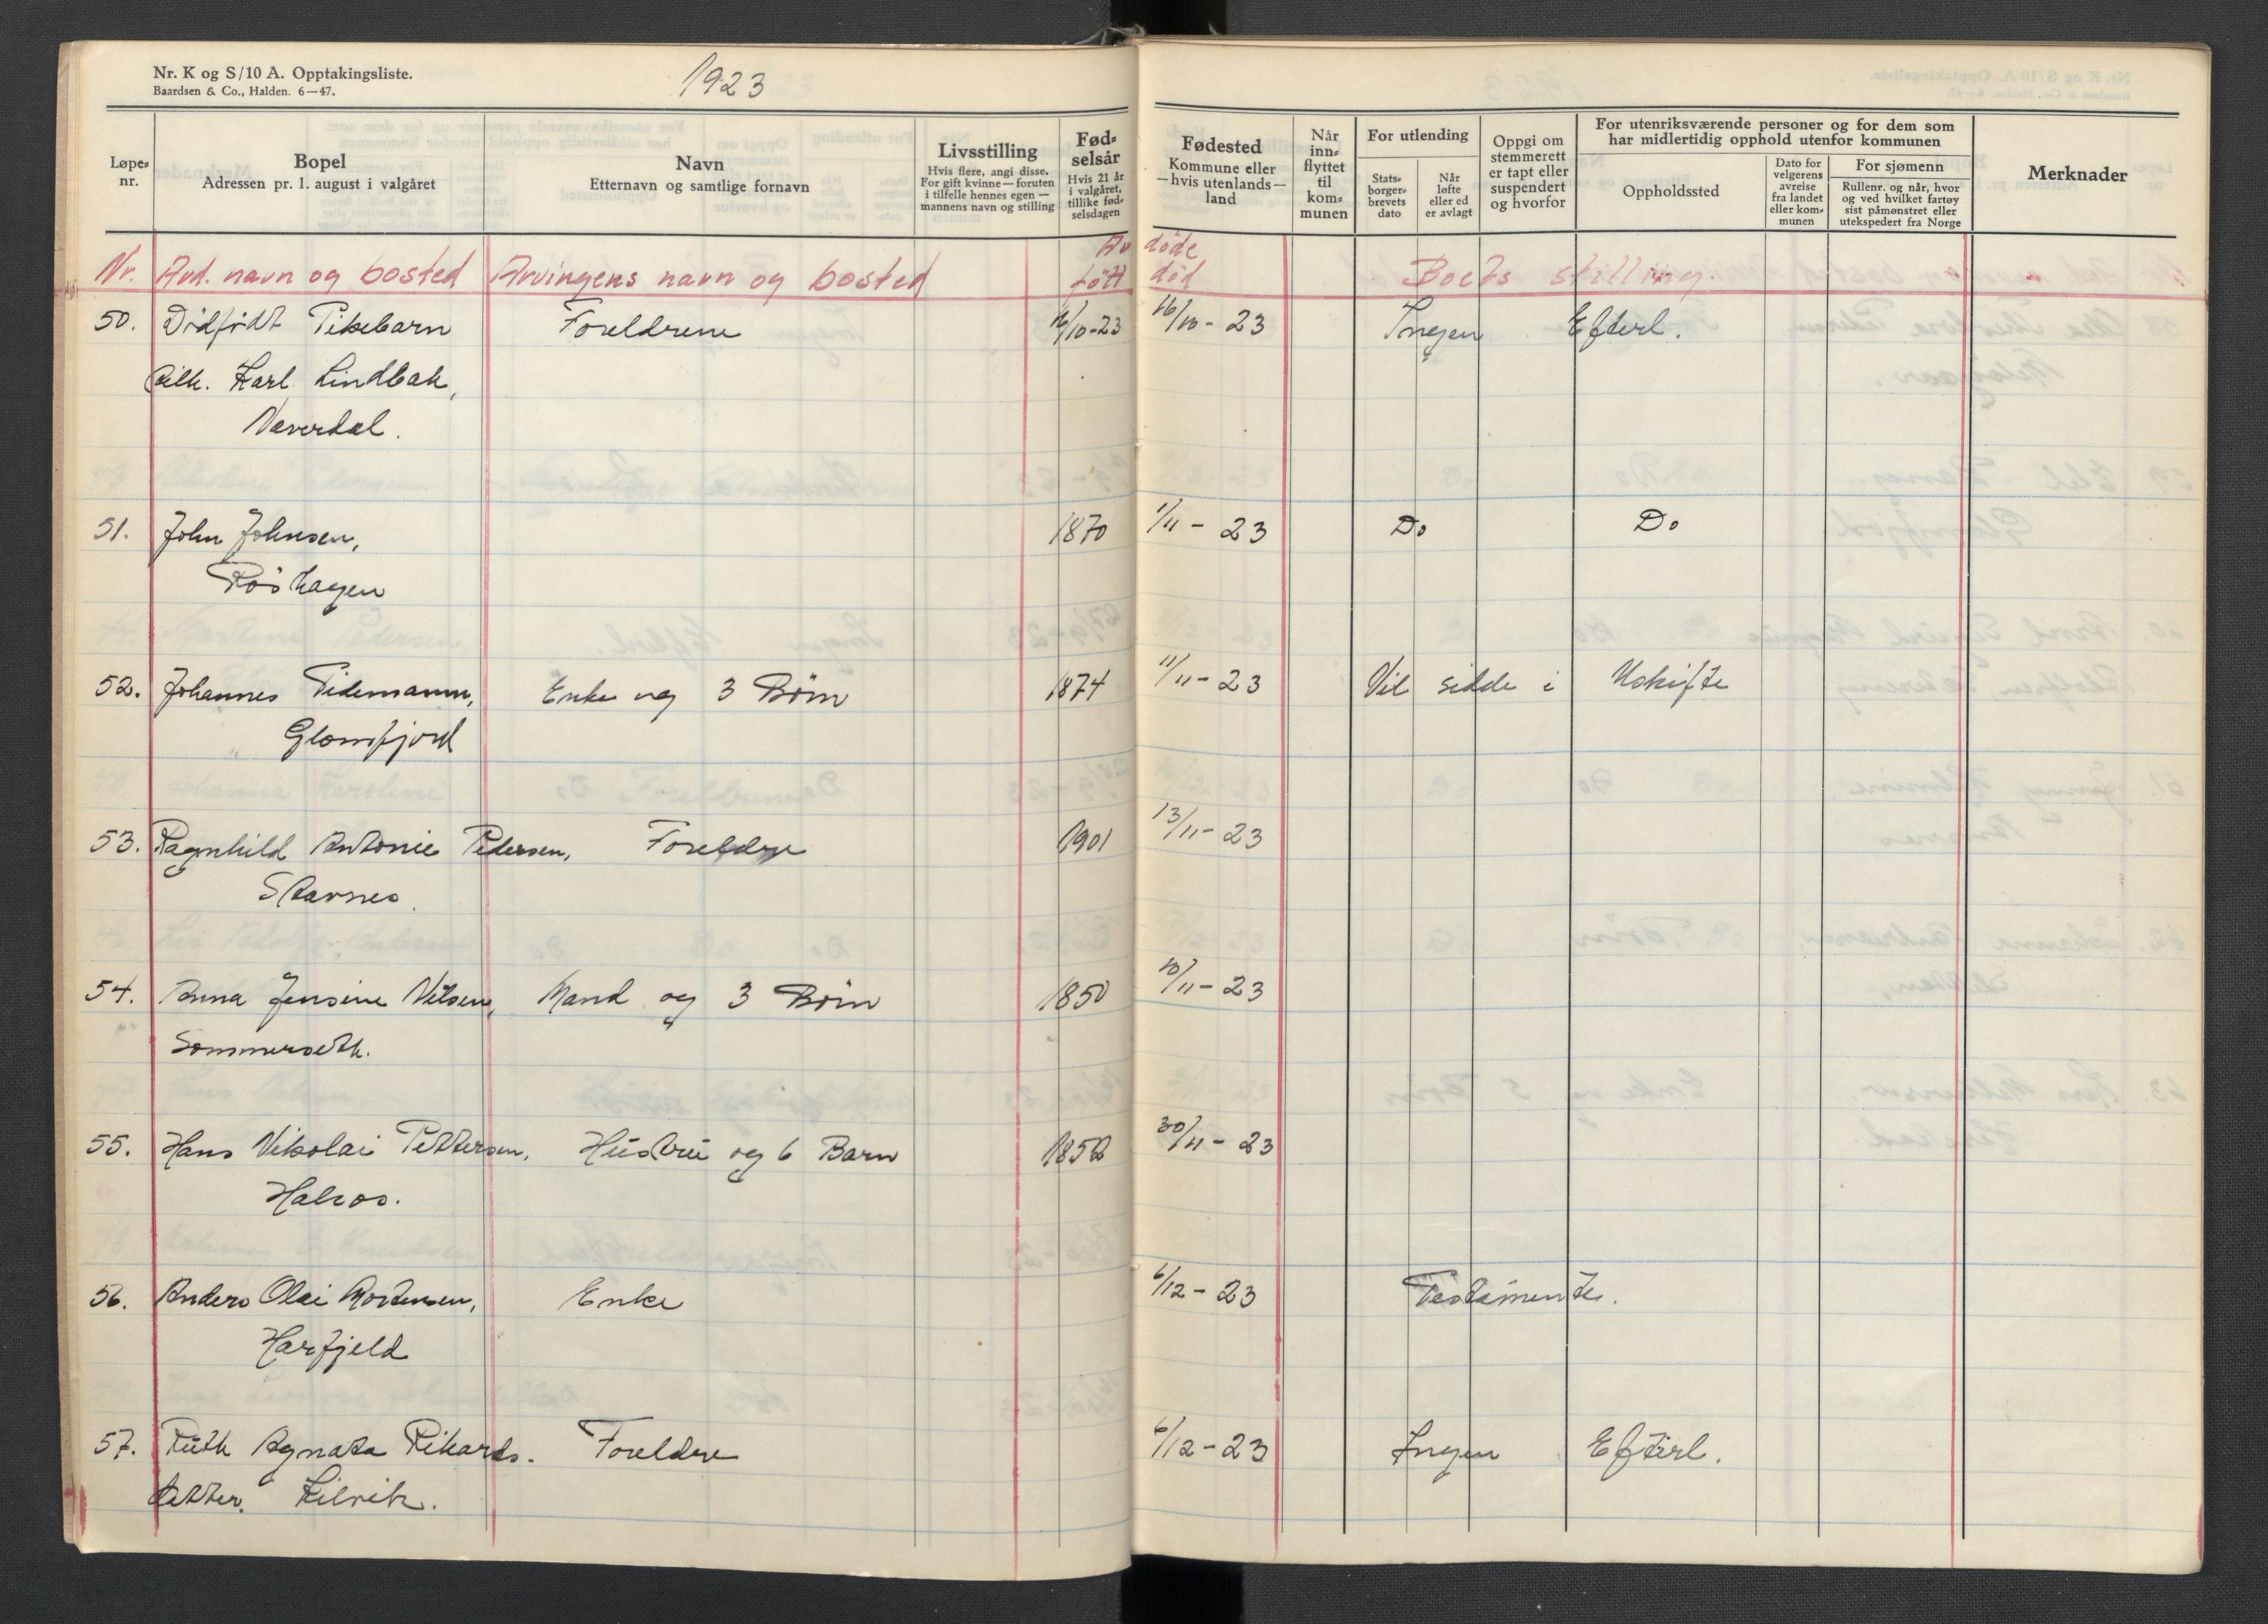 Nr. K og S/10 A. Opptakingsliste.
Baardsen & Co., Halden. 6—47.
1923
Løpe-nr.
Bopel
Adressen pr. 1. august i valgåret
Navn
Etternavn og samtlige fornavn
Livsstilling
Hvis flere, angi disse.
For gift kvinne — foruten
i tilfelle hennes egen —
mannens navn og stilling
Fød-
selsår
Hvis 21 år
i valgåret,
tillike fød-
selsdagen
Fødested
Kommune eller
—hvis utenlands—
land
Når
inn-
flyttet
til
kom-
munen
For utlending
Stats-
borger-
brevets
dato
Når
løfte
eller ed
er avlagt
Oppgi om
stemmerett
er tapt eller
suspendert
og hvorfor
For utenriksværende personer og for dem som
har midlertidig opphold utenfor kommunen
Oppholdssted
Dato for
velgerens
avreise
fra landet
eller kom-
munen
For sjømenn
Rullenr. og når, hvor
og ved hvilket fartøy
sist påmønstret eller
utekspedert fra Norge
Merknader
Av døde
Nr. Avd. navn og bosted Arvingens navn og bosted født død Boets stilling.
50. Dødfødt Pikebarn Foreldrene 16/10-23 16/10-23 Ingen Efterl.
Karl Lindbak,
Neverdal.
51. John Johnsen, 1870 1/11-23 Do Do
Røshagen
52. Johannes Tidemann, Enke og 3 Børn 1874 11/11-23 Vil sidde i Uskifte
Glomfjord
53. Ragnhild Antonie Pedersen, Foreldre 1901 13/11-23
Stavnes
54. Anna Jensine Nilsen, Mand og 3 Børn 1850 10/11-23
Sommerseth.
55. Hans Nikolai Pettersen, Hustru og 6 Barn 1852 30/11-23
Halsos.
56. Anders Olai Mortensen, Enke 6/12-23 Testamente.
Harfjeld
57. Ruth Agnata Rikards. Foreldre 6/12-23 Ingen Efterl.
datter. Kilvik.